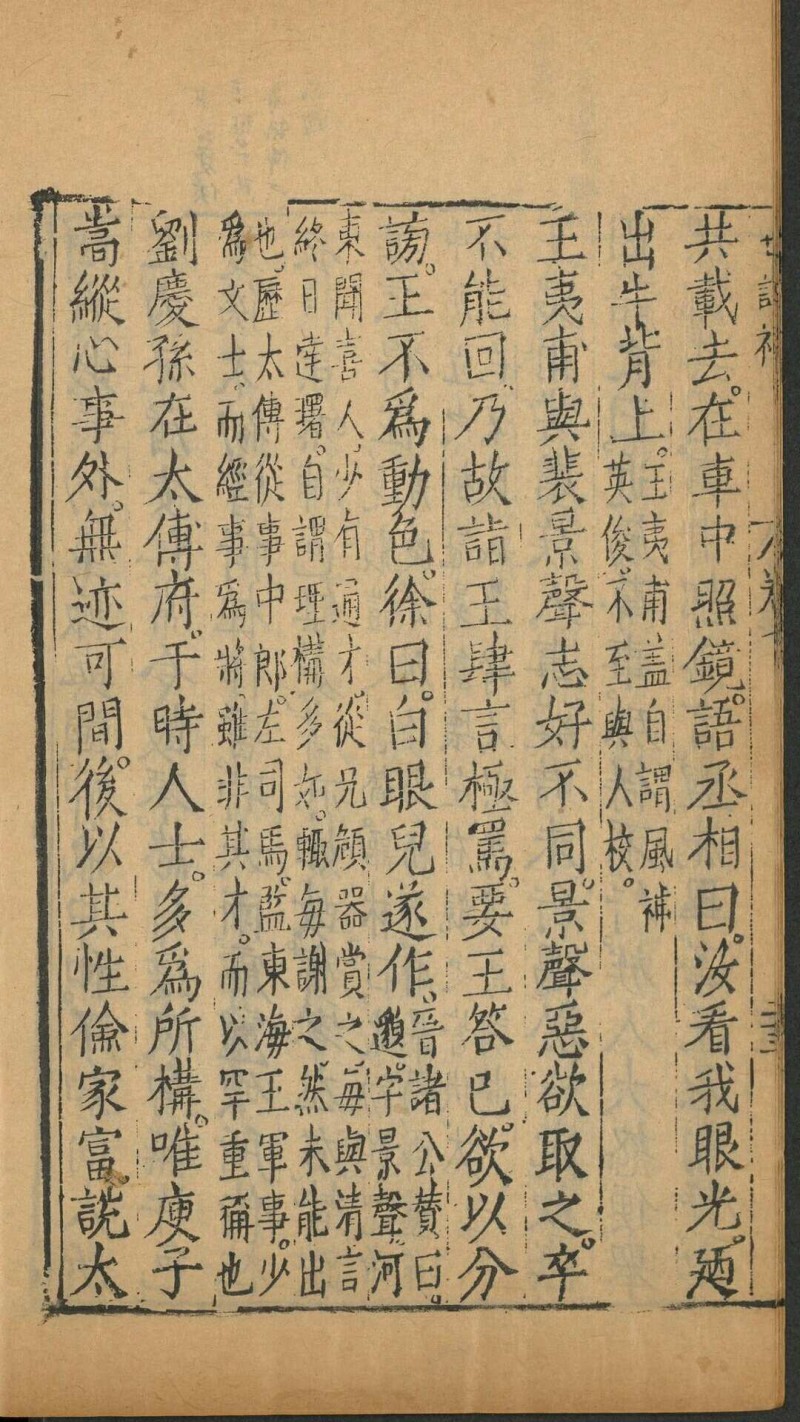 世說補
共載去。在車中照鏡。語丞相曰。汝看我眼光。廼
出牛背上。
王夷甫盖自謂風神
英俊。不至與人校。
王夷甫與裴景聲志好不同。景聲惡欲取之。卒
不能回。乃故詣王肆言極罵。要王答已。欲以分
謗。王不爲動色。徐曰。白眼兒遂作。
晉諸公贊曰。
邈字景聲。河
東聞喜人。少有通才。從兄頠器賞之。每與清言
終日達曙。自謂理構多如。輒每謝之。然未能出
也。歷太傅從事中郎。左司馬。監東海王軍事。少
爲文士。而經事爲將。雖非其才。而以罕重稱也
劉慶孫在太傅府。于時人士。多爲所構。唯庾子
嵩縱心事外。無迹可間。後以其性儉家富。說太